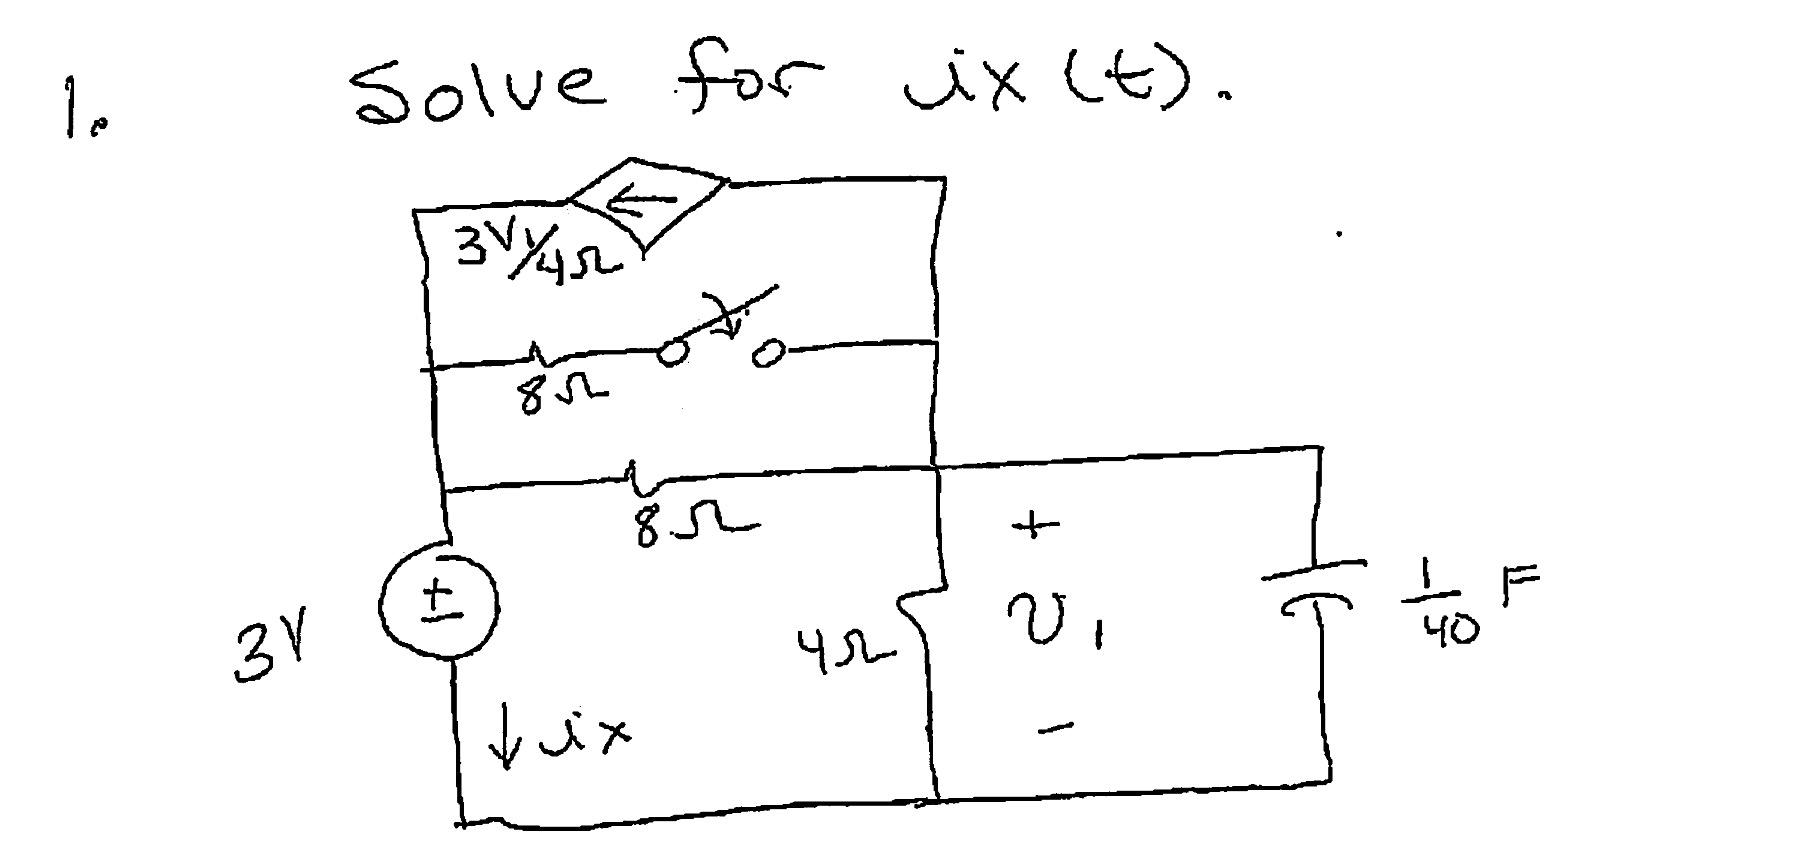 1. Solve for ix(t).
3V1/4Ω
8Ω
8Ω
+
3V
±
4Ω
v1
1/40 F
↓ ix
−